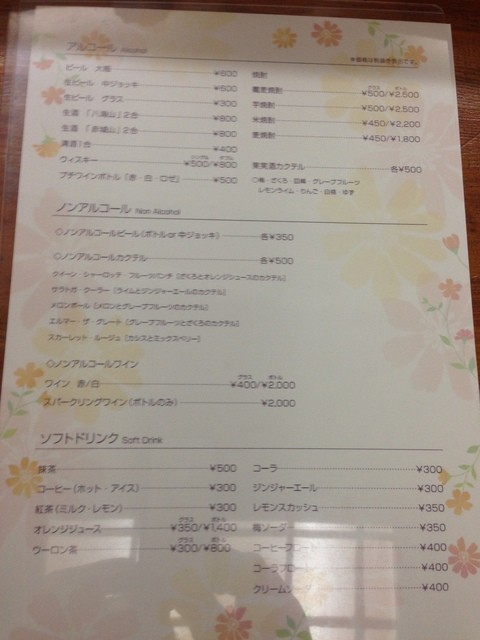 アルコール Alcohol
ビール 大瓶 ¥600
生ビール 中ジョッキ ¥600
生ビール グラス ¥300
生酒 「八海山」2合 ¥800
生酒 「赤城山」2合 ¥800
清酒1合 ¥400
シングル ダブル
ウィスキー ¥500/¥800
プチワインボトル「赤・白・ロゼ」 ¥500
焼酎
グラス ボトル
蕎麦焼酎 ¥500/¥2,500
芋焼酎 ¥500/¥2,500
米焼酎 ¥450/¥2,200
麦焼酎 ¥450/¥1,800
果実酒カクテル 各¥500
レモンライム・りんご・白桃・ゆず
ノンアルコール Non Alcohol
◇ノンアルコールビール(ボトルor中ジョッキ) 各¥350
◇ノンアルコールカクテル 各¥500
クイーン・シャーロッテ・フルーツパンチ [ざくろとオレンジジュースのカクテル]
サラトガ・クーラー [ライムとジンジャーエールのカクテル]
メロンボール [メロンとグレープフルーツのカクテル]
エルマー・ザ・グレート [グレープフルーツとざくろのカクテル]
スカーレット・ルージュ [カシスとミックスベリー]
◇ノンアルコールワイン
グラス ボトル
ワイン 赤/白 ¥400/¥2,000
スパークリングワイン(ボトルのみ) ¥2,000
ソフトドリンク Soft Drink
抹茶 ¥500
コーヒー(ホット・アイス) ¥300
紅茶(ミルク・レモン) ¥300
グラス ボトル
オレンジジュース ¥350/¥1,400
グラス ボトル
ウーロン茶 ¥300/¥800
コーラ ¥300
ジンジャーエール ¥300
レモンスカッシュ ¥350
梅ソーダ ¥350
コーヒーフロート ¥400
コーラフロート ¥400
¥400